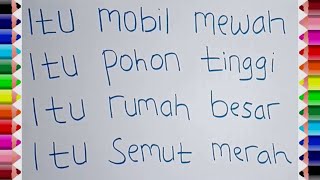 Itu mobil mewah
Itu pohon tinggi
Itu rumah besar
Itu Semut merah